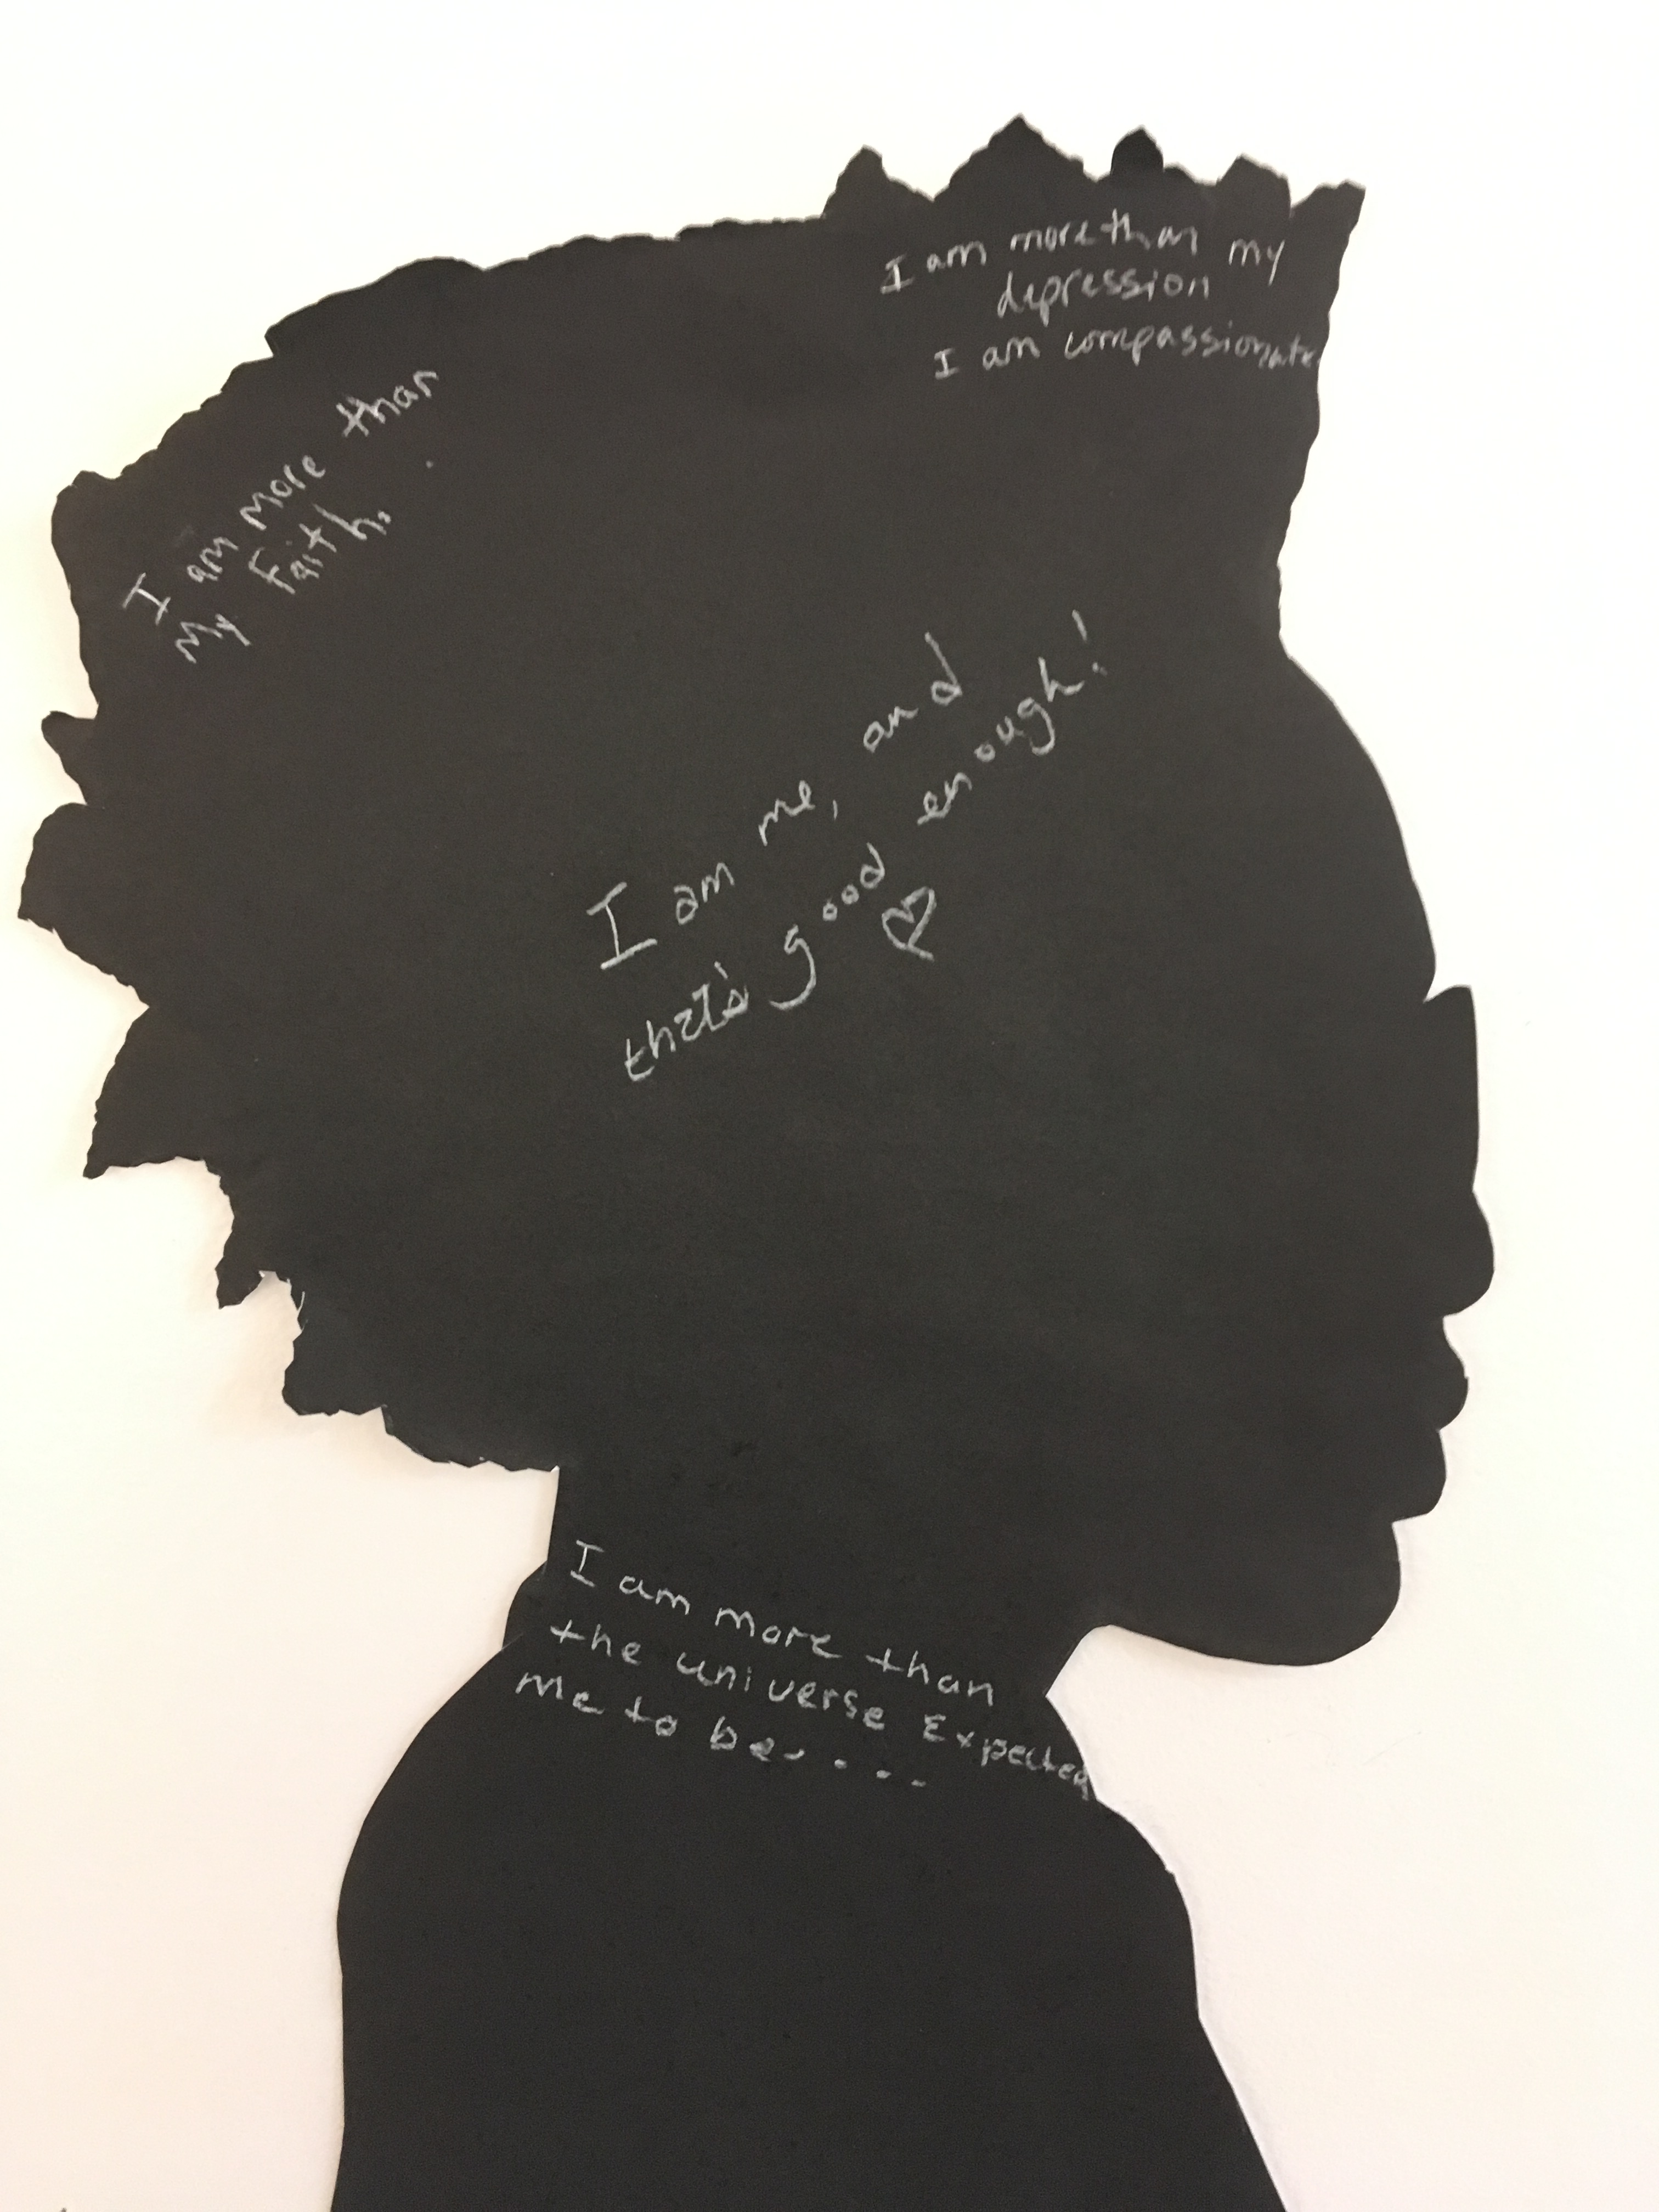 I am more than my
depression
I am compassionate
I am more than
My Faith.
I am me, and
that's good enough!
I am more than
the universe Expected
me to be....